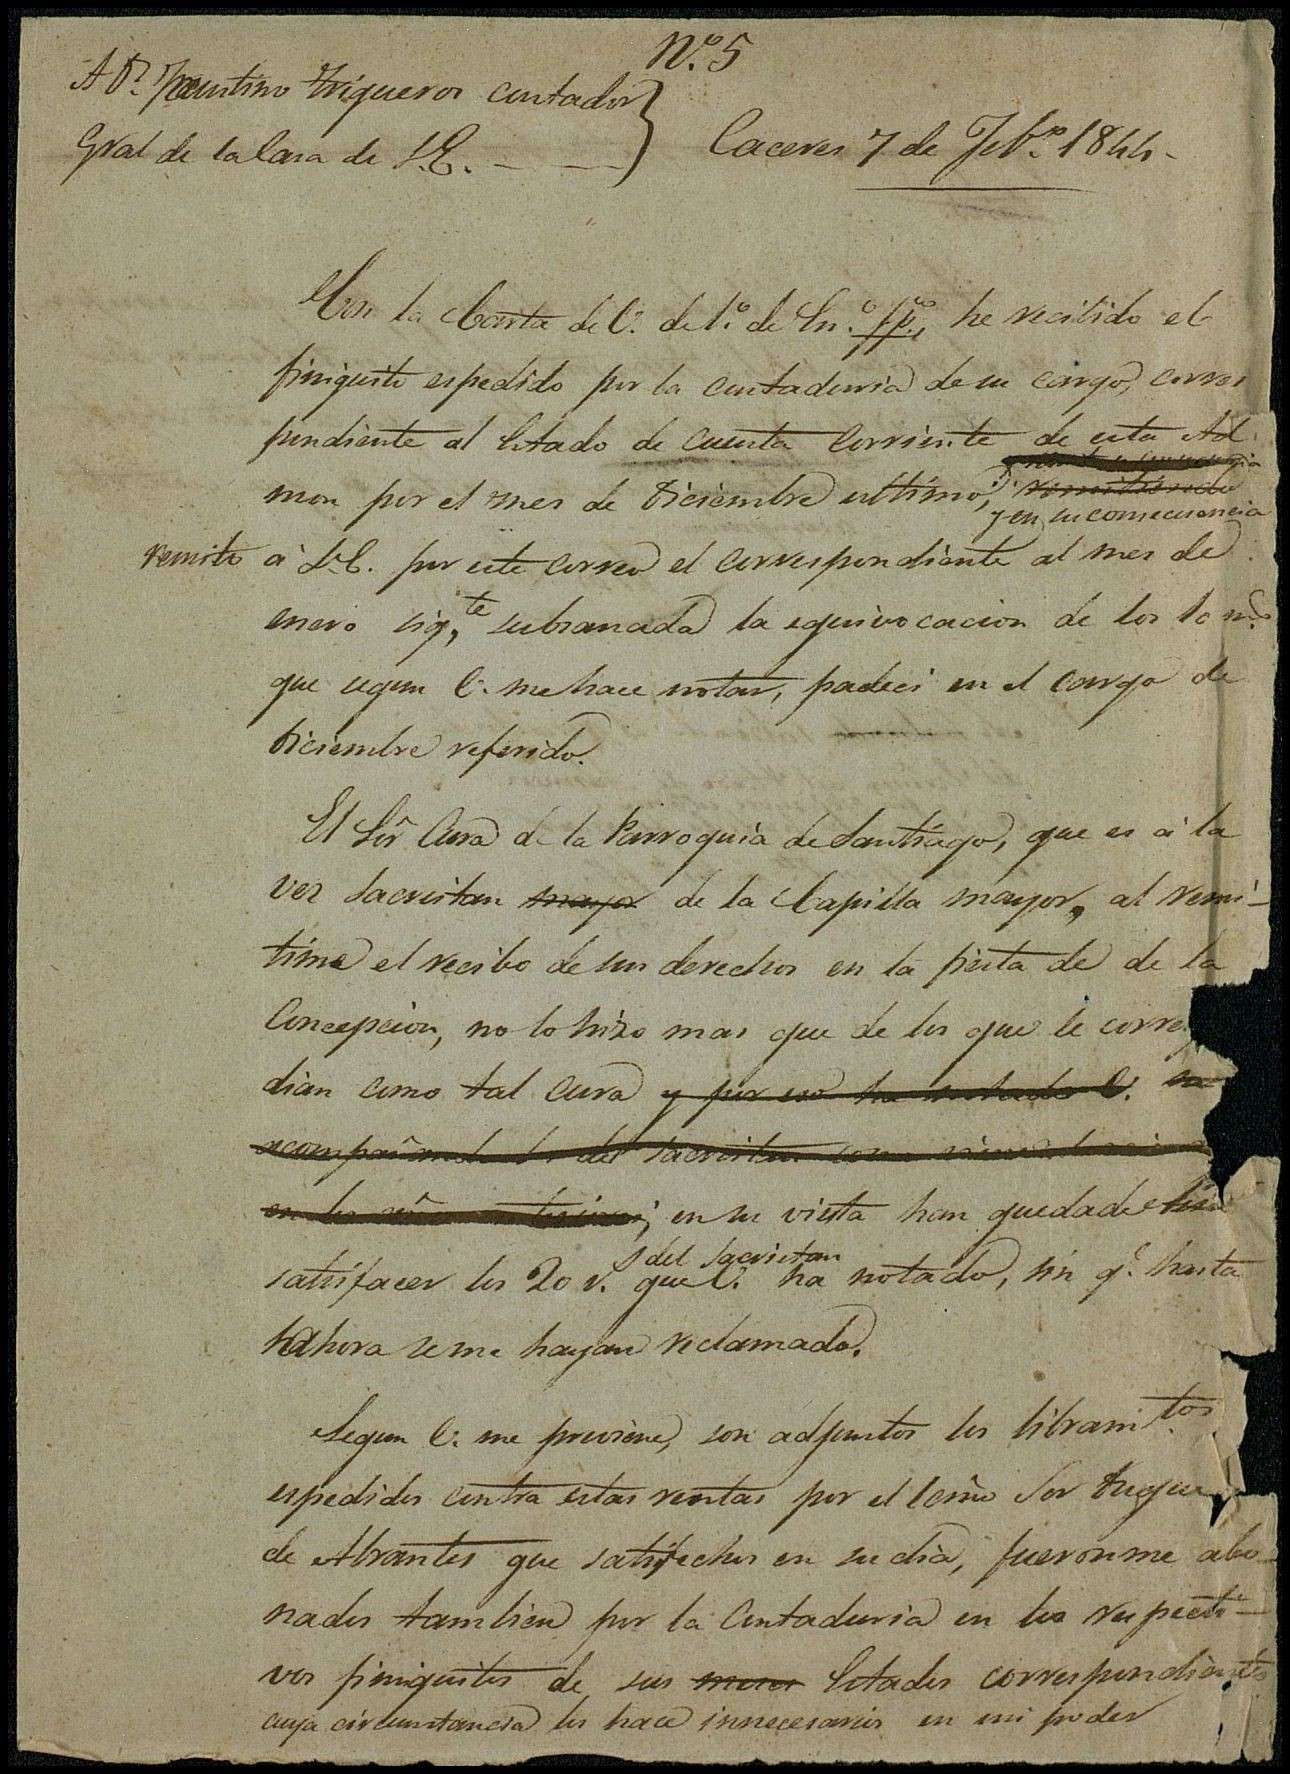 Nº. 5
A Dn. Faustino Trigueros contador
Gral de la Casa de S.E.
Caceres 7 de Febº. 1844.
Con la Carta de V. de 1º. de En.º ppº., he recibido el
finiquito espedido por la contaduria de su cargo, corres
pondiente al Estado de cuenta corriente de esta Ad
mon por el mes de Diciembre ultimo, remitiendo
y en su consecuencia
remito á S.E. por este correo el correspondiente al mes de
enero sigte, subsanada la equivocacion de los 10 mrs.
que segun V. me hace notar, padeci en el cargo de
Diciembre referido.
El Sôr Cura de la Parroquia de Santiago, que es á la
vez Sacristan mayor de la Capilla mayor, al remi-
tirme el recibo de sus derechos en la fiesta de de la
Concepcion, no lo hizo mas que de los que le corres
dian como tal cura y por eso ha notado V.
acompañando el del sacristan como
en los años anteriores; en su vista han quedado sin
satisfacer los 20 r. que V. ha notado, sin q.e hasta
s del sacristan
ahora se me hayan reclamado.
Segun V. me previene, son adjuntos los libramitos.
espedidos contra estas rentas por el Ecsmo Sor Duque
de Abrantes que satisfechos en su dia, fueronme abo-
nados tambien por la Contaduria en los respecti-
vos finiquitos de sus meses Estados correspondientes
cuya circunstancia los hace innecesarios en mi poder